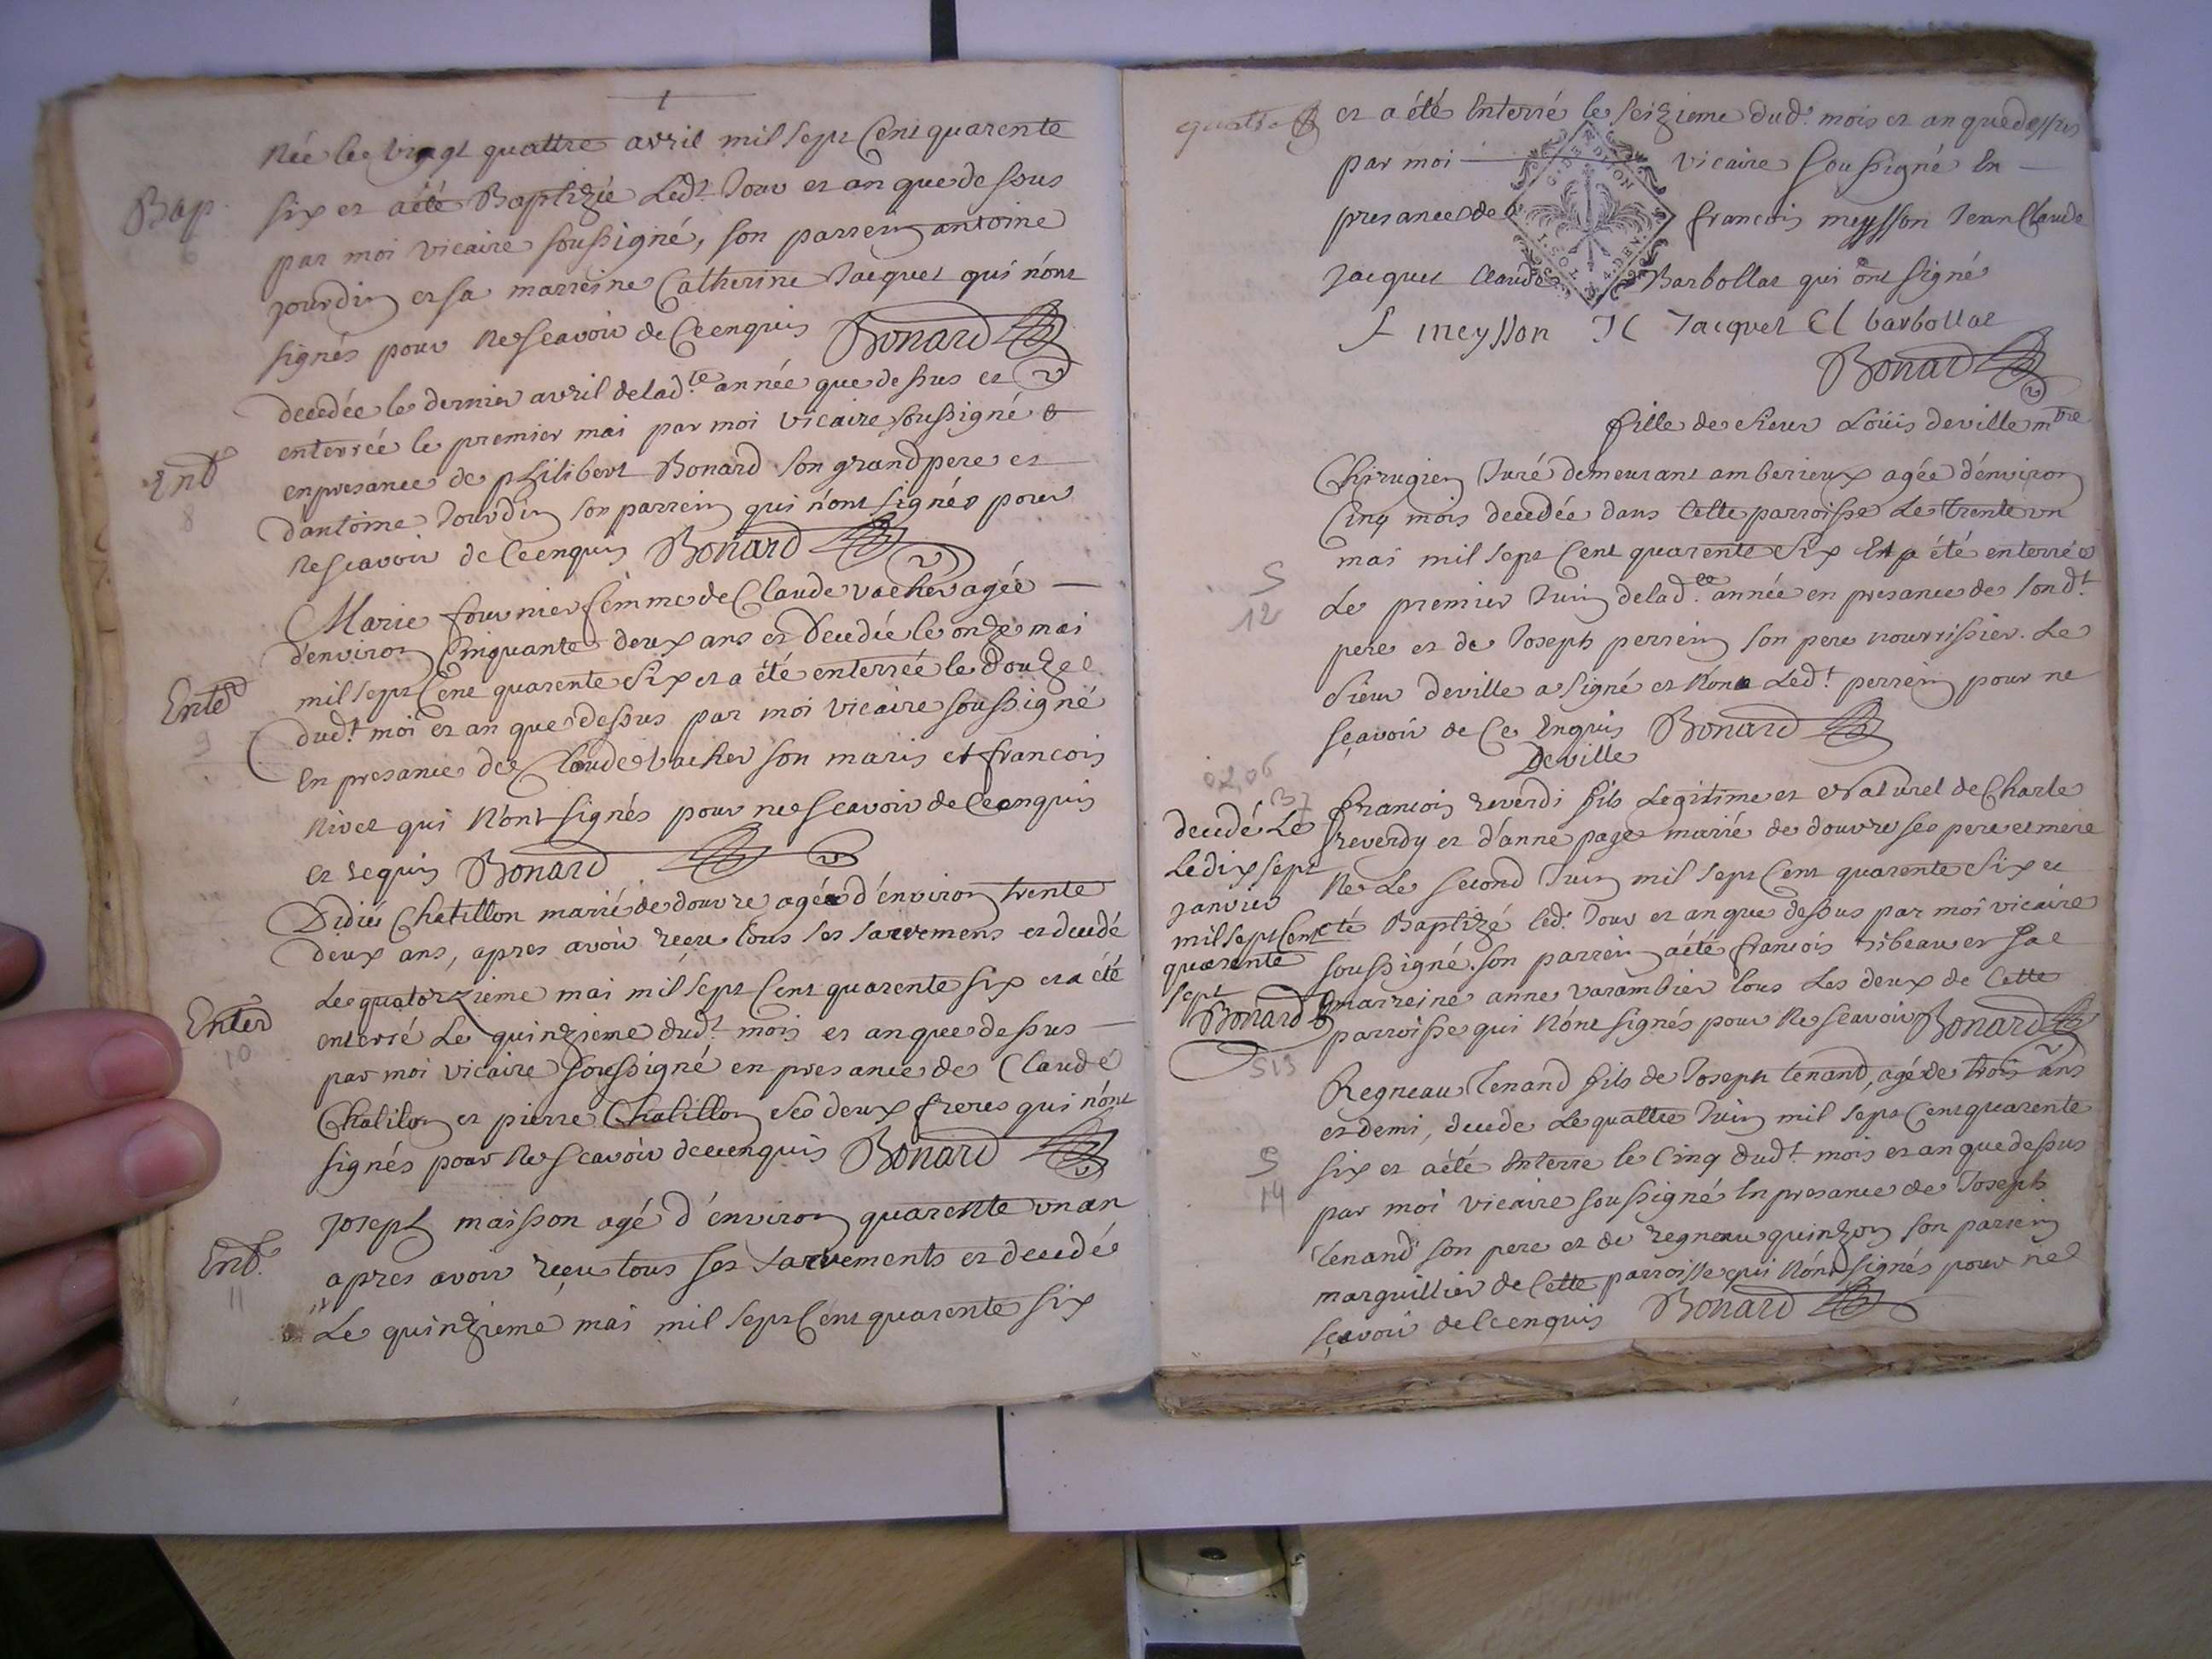 1
née le vingt quattre avril mil sept Cent quarente
Bap.
6
six et a été Baptizée led.t Jour et an que dessus
par moi vicaire soussigné, son parrein antoine
jourdin et sa marreine Catherine Jacquet qui n'ont
signés pour ne scavoir de Ce enquis Bonard
decedée le dernier avril de lad.te année que dessus et
Ent
8
enterrée le premier mai par moi vicaire soussigné &
en presance de philibert Bonard son grand pere et
d'antoine Jourdin son parrein qui n'ont signés pour
ne scavoir de Ce enquis Bonard
Marie fournier femme de Claude vacher agée
d'environ Cinquante deux ans et decedée le onze mai
Enter
9
mil sept Cent quarente six et a été enterrée le douze
dud.t moi et an que dessus par moi vicaire soussigné
en presance de Claude vacher son maris et francois
nivet qui n'ont signés pour ne scavoir de Ce enquis
et requis Bonard
Didier Chatillon marié de douvre agée d'environ trente
deux ans, apres avoir reçeu tous ses sacremens et decedé
Enter
10
Le quatorzieme mai mil sept Cent quarente six et a été
enterré Le quinzieme dud.t mois et an que dessus
par moi vicaire soussigné en presance de Claude
Chatilon et pierre Chatillon ses deux freres qui n'ont
signés pour ne scavoir de ce enquis Bonard
Ent.
11
joseph maisson agé d'environ quarente un an
apres avoir reçeu tous ses sacrements et decedé
Le quinzieme mai mil sept Cent quarente six
quatre
et a été Enterré le seizieme dud.t mois et an que dessus
par moi vicaire soussigné En
presance de francois meysson Jean Claude
Jacquet Claude Barbollat qui ont signé
f meysson JC Jacquet Cl barbollat
Bonard
fille de sieur Loüis deville m.tre
Chirugien Juré demeurant amberieux agée d'environ
Cinq mois decedée dans Cette parroisse Le trente un
mai mil sept Cent quarente six Et a été enterrée
S
12
Le premier Juin de lad.te année en presance de sond.t
pere et de Joseph perrein son pere nourrissier. Le
sieur deville a signé et non Led.t perrein pour ne
sçavoir de Ce Enquis Bonard
Deville
B7
francois reverdi fils Legitime et Naturel de Charle
reverdy et d'anne page marié de douvre ses pere et mere
Né Le second Juin mil sept Cent quarente six et
eté Baptizé led.t Jour et an que dessus par moi vicaire
soussigné. son parrein a été francois ribeau et sa
marreine anne varambier tous Les deux de Cette
parroisse qui n'ont signés pour ne scavoir Bonard
decedé Le
Le dix sept
janvier
mil sept Cent
quarente
sept
Bonard
S13
Regneau Tenand fils de Joseph tenand, agé de trois ans
et demi, decede Le quattre Juin mil sept Cent quarente
S
14
six et a été Enterre le Cinq dud.t mois et an que dessus
par moi vicaire soussigné En presance de Joseph
Tenand son pere et de regneau quinzon son parrein
marguillier de Cette parroisse qui n'ont signés pour ne
sçavoir de Ce enquis Bonard